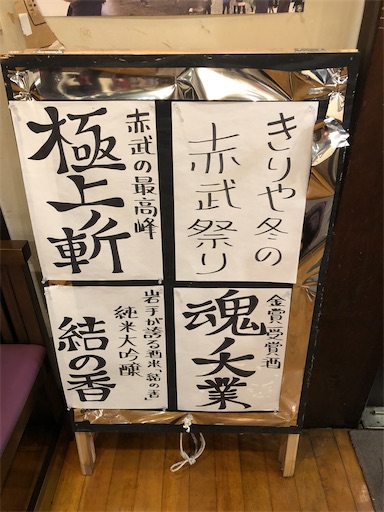 きりや冬の
赤武祭り
赤武の最高峰
極上ノ斬
金賞受賞酒
魂ノ大業
岩手が誇る酒米「結の香」
純米大吟醸
結の香